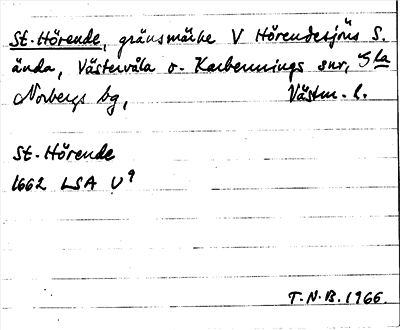 St. Hörende, gränsmärke V Hörendesjöns S.
ända, Västervåla o. Karbennings snr, Gla
Norbergs bg, Västm. l.
St. Hörende
1662 LSA U9
T.N.B. 1966.